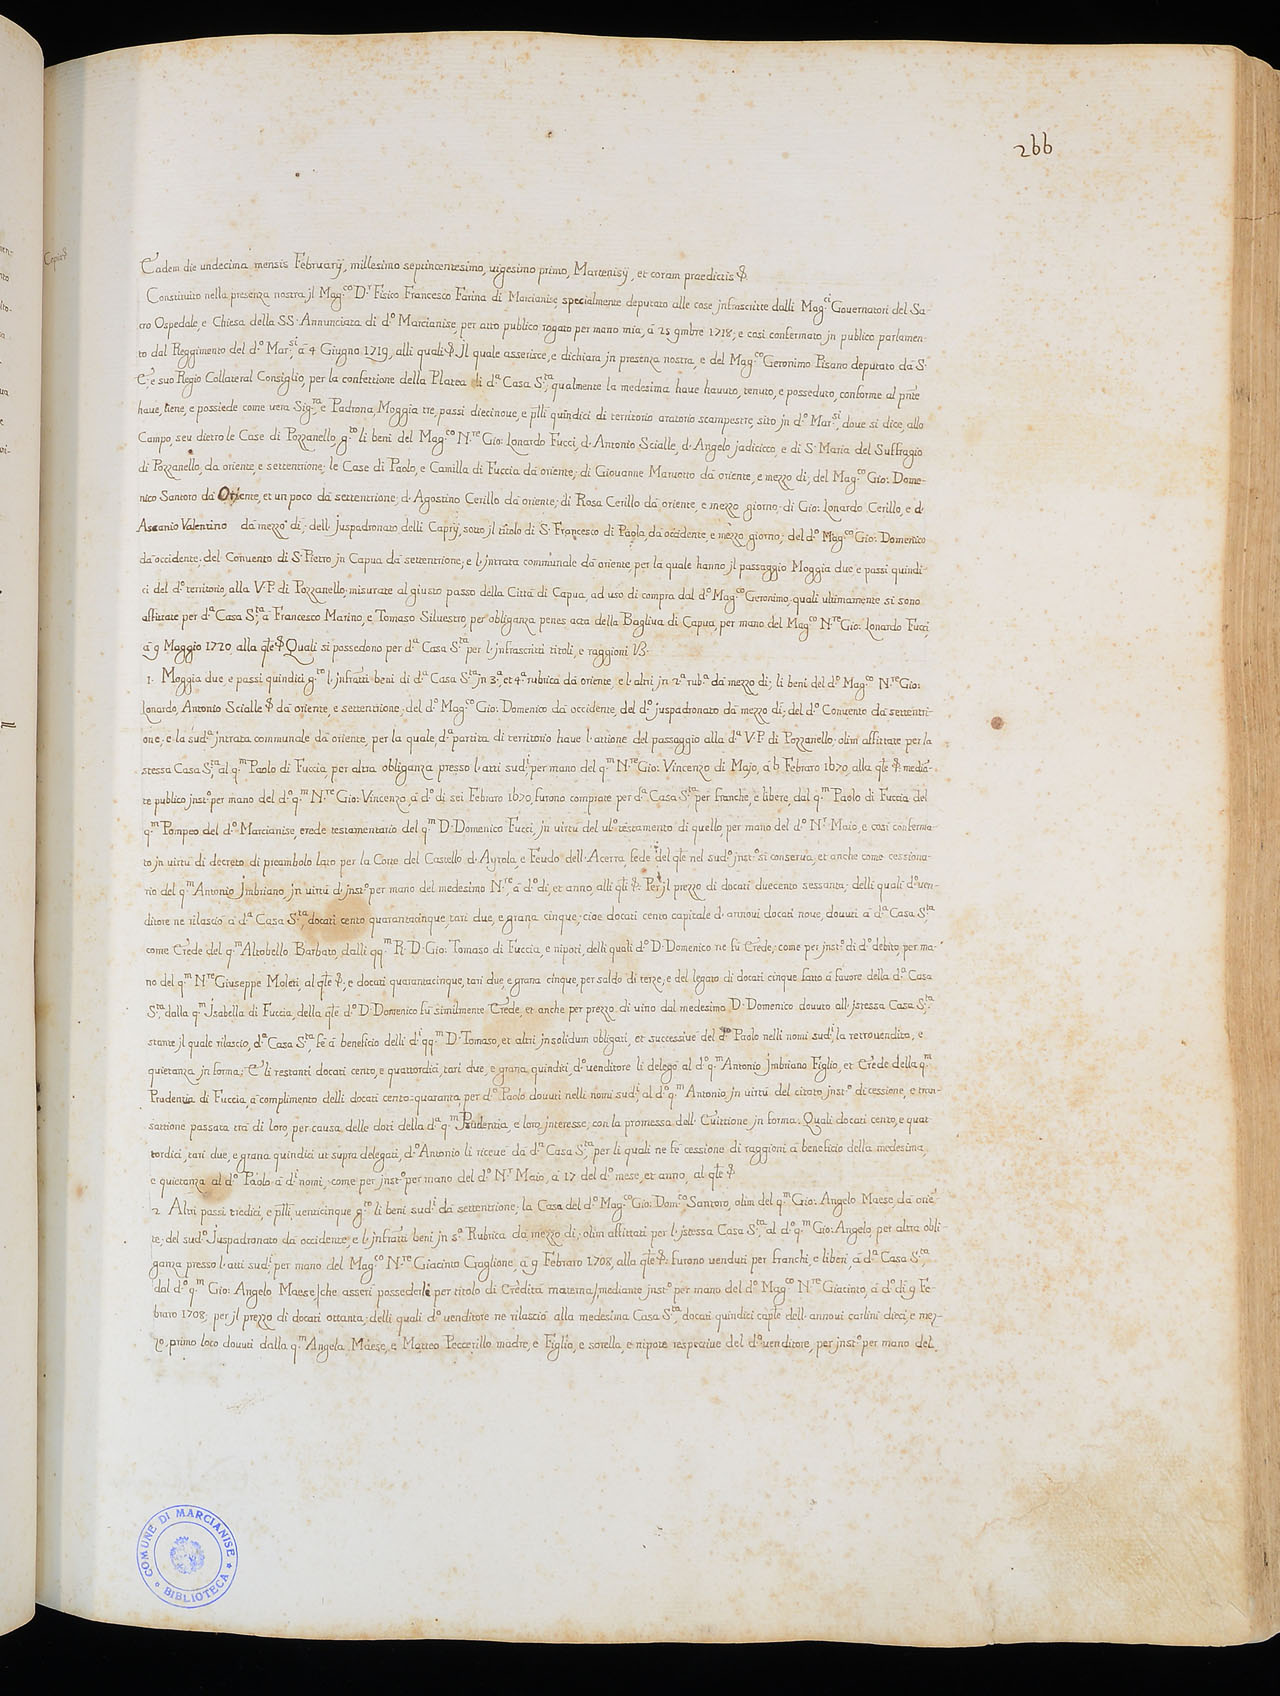 266
Copia
Eadem die undecima mensis Februarij, millesimo septincentesimo, uigesimo primo, Martenisij, et coram praedictis &.
Constituito nella presenza nostra jl Mag.co D.r Fisico Francesco Farina di Marcianise, specialmente deputato alle cose jnfrascritte dalli Mag.ci Governatori del Sa-
cro Ospedale, e Chiesa della SS. Annunciata di d.o Marcianise, per atto publico rogato per mano mia, à 25 9mbre 1718; e così confermato jn publico parlamen-
to dal Reggimento del d.o Mar.si, à 4 Giugno 1719, alli quali &. Jl quale asserisce, e dichiara jn presenza nostra, e del Mag.co Geronimo Pisano deputato da S.
E. e suo Regio Collateral Consiglio, per la confettione della Platea di d.a Casa S.ta, qualmente la medesima haue hauuto, tenuto, e posseduto, conforme al pnte
haue, tiene, e possiede come uera Sig.ra e Padrona, Moggia tre, passi diecinoue, e plli quindici di territorio aratorio scampestre, sito jn d.o Mar.si, doue si dice, allo
Campo, seu dietro le Case di Pozzanello, g.to li beni del Mag.co N.re Gio: Lonardo Fucci, d. Antonio Scialle, d. Angelo jadicicco, e di S. Maria del Suffragio
di Pozzanello, da oriente, e settentrione; le Case di Paolo, e Camilla di Fuccia da oriente; di Giouanne Maruotto da oriente, e mezzo di; del Mag.co Gio: Dome-
nico Santoro da Oriente, et un poco da settentrione; d. Agostino Cerillo da oriente; di Rosa Cerillo da oriente, e mezzo giorno; di Gio: Lonardo Cerillo, e d.
Ascanio Valentino da mezzo di; dell. Juspadronato delli Caprij, sotto jl titolo di S. Francesco di Paola, da occidente, e mezzo giorno; del d.o Mag.co Gio: Domenico
da occidente; del Conuento di S. Pietro jn Capua da settentrione; e l. jntrata communale da oriente, per la quale hanno jl passaggio Moggia due e passi quindi-
ci del d.o territorio, alla V.P. di Pozzanello, misurate al giusto passo della Città di Capua, ad uso di compra dal d.o Mag.co Geronimo, quali ultimamente si sono
affittate per d.a Casa S.ta, à Francesco Marino, e Tomaso Siluestro, per obliganza penes acta della Bagliua di Capua, per mano del Mag.co N.re Gio: Lonardo Fucci,
à 9 Maggio 1720, alla qle &. Quali si possedono per d.a Casa S.ta per l. jnfrascritti titoli, e raggioni V3.
1. Moggia due, e passi quindici g.to l. jnfratti beni di d.a Casa S.ta, jn 3.a, et 4.a rubrica da oriente, e l. altri jn 2.a rub.a da mezzo di; li beni del d.o Mag.co N.re Gio:
Lonardo, Antonio Scialle &. da oriente, e settentrione; del d.o Mag.co Gio: Domenico da occidente, del d.o juspadronato da mezzo di; del d.o Conuento da settentri-
one, e la sud.a jntrata communale da oriente, per la quale, d.a partita di territorio haue l. attione del passaggio alla d.a V.P. di Pozzanello; olim affittate per la
stessa Casa S.ta, al q.m Paolo di Fuccia, per altra obliganza presso l. atti sud.i, per mano del q.m N.re Gio: Vincenzo di Majo, à 6 Febraro 1670, alla qle &. median-
te publico jnst.o per mano del d.o q.m N.re Gio: Vincenzo, à d.o di sei Febraro 1670, furono comprate per d.a Casa S.ta per franche, e libere, dal q.m Paolo di Fuccia del
q.m Pompeo del d.o Marcianise, erede testamentario del q.m D. Domenico Fucci, jn uirtù del ul.o testamento di quello, per mano del d.o N.r Maio, e così conferma-
to jn uirtù di decreto di preambolo lato per la Corte del Castello d. Ayrola, e Feudo dell. Acerra, fede del qle nel sud.o jnst.o si conserua, et anche come cessiona-
rio del q.m Antonio Jmbriano, jn uirtù di jnst.o per mano del medesimo N.re, à d.o di, et anno, alli qli &. Per jl prezzo di docati duecento sessanta; delli quali d.o uen-
ditore ne rilasciò à d.a Casa S.ta, docati cento quarantacinque, tarì due, e grana cinque; cioe docati cento capitale d. annoui docati noue, douuti à d.a Casa S.ta
come Erede del q.m Altobello Barbato, dalli qq.m R. D. Gio: Tomaso di Fuccia, e nipoti, delli quali d.o D. Domenico ne fù Erede; come per jnst.o di d.o debito, per ma-
no del q.m N.re Giuseppe Moleti, al qle &., e docati quarantacinque, tarì due, e grana cinque, per saldo di terze, e del legato di docati cinque fatto à fauore della d.a Casa
S.ta, dalla q.m Jsabella di Fuccia, della qle d.o D. Domenico fù similmente Erede, et anche per prezzo di uino dal medesimo D. Domenico douuto all. jstessa Casa S.ta
stante jl quale rilascio, d.a Casa S.ta, fè à beneficio delli d.i qq.m D. Tomaso, et altri jnsolidum obligati, et successiuè del d.o Paolo nelli nomi sud.i, la retrouendita, e
quietanza jn forma; E li restanti docati cento, e quattordici, tarì due, e grana quindici, d.o uenditore li delegò al d.o q.m Antonio Jmbriano Figlio, et Erede della q.m
Prudenzia di Fuccia, à complimento delli docati cento quaranta, per d.o Paolo douuti nelli nomi sud.i, al d.o q.m Antonio, jn uirtù del citato jnst.o di cessione, e tran-
sattione passata trà di loro, per causa delle doti della d.a q.m Prudentia, e loro jnteresse; con la promessa dell. Euittione jn forma. Quali docati cento, e quat-
tordici, tarì due, e grana quindici ut supra delegati, d.o Antonio li riceuè da d.a Casa S.ta, per li quali ne fè cessione di raggioni à beneficio della medesima,
e quietanza al d.o Paolo à d.i nomi; come per jnst.o per mano del d.o N.r Maio, à 17 del d.o mese, et anno, al qle &.
2. Altri passi tredici, e plli uenticinque g.to li beni sud.i da settentrione; la Casa del d.o Mag.co Gio: Dom.co Santoro, olim del q.m Gio: Angelo Maese, da orien-
te; del sud.o Juspadronato da occidente, e l. jnfratti beni jn 5.a Rubrica da mezzo di; olim affittati per l. jstessa Casa S.ta, al d.o q.m Gio: Angelo, per altra obli-
ganza presso l. atti sud.i, per mano del Mag.co N.re Giacinto Gaglione, à 9 Febraro 1708, alla qle &. furono uenduti per franchi, e liberi, à d.a Casa S.ta,
dal d.o q.m Gio: Angelo Maese, che asserì possederli per titolo di Eredità materna, mediante jnst.o per mano del d.o Mag.co N.re Giacinto, à d.o di 9 Fe-
braro 1708; per jl prezzo di docati ottanta; delli quali d.o uenditore ne rilasciò alla medesima Casa S.ta, docati quindici caple dell. annoui carlini dieci, e mez-
zo, primo loco douuti dalla q.m Angela Maese, e Matteo Peccerillo madre, e Figlio, e sorella, e nipote respectiue del d.o uenditore, per jnst.o per mano del
COMUNE DI MARCIANISE
BIBLIOTECA